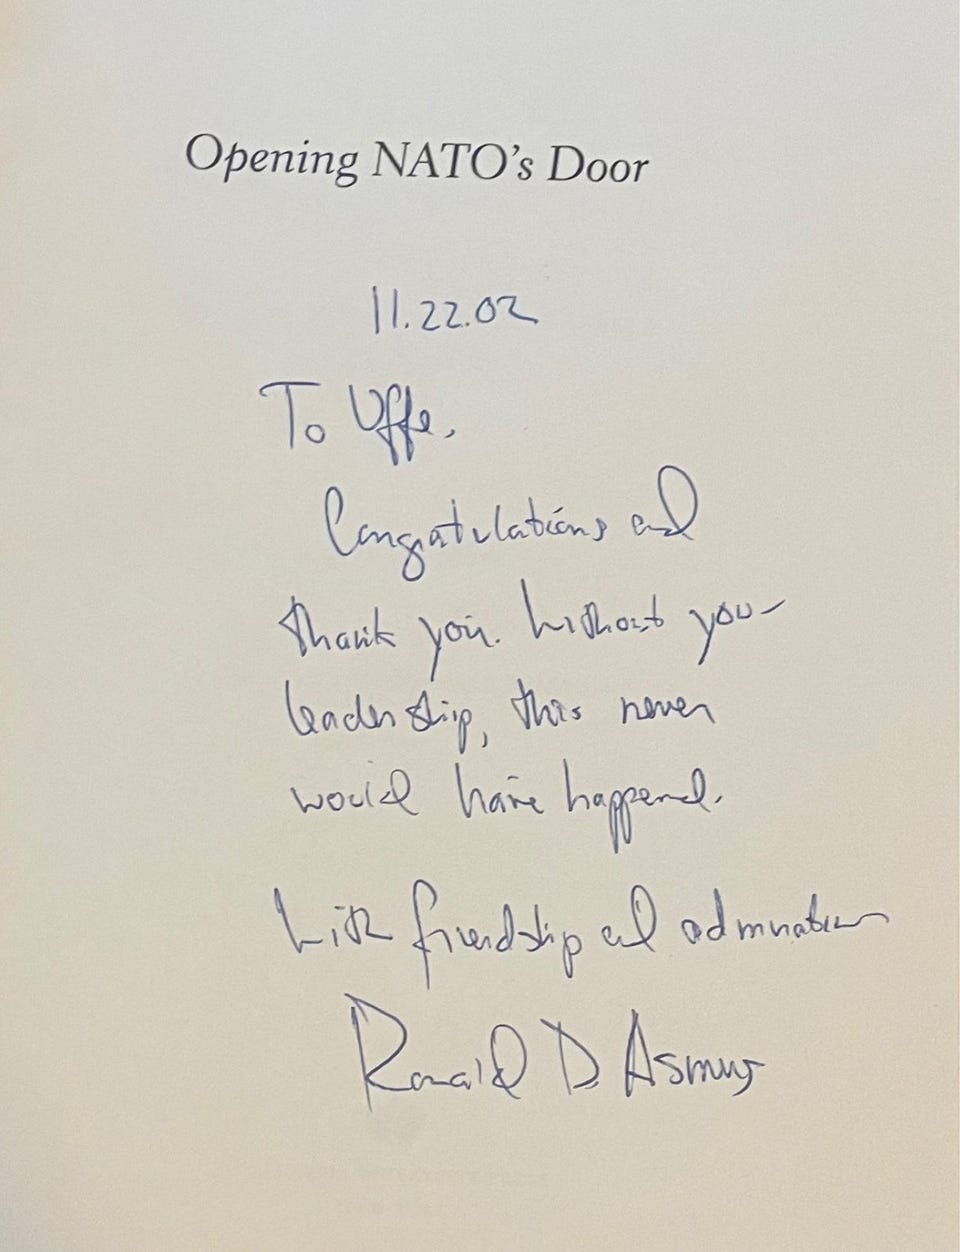 Opening NATO's Door
11.22.02
To Uffe,
Congratulations and
thank you. Without your
leadership, this never
would have happened.
With friendship and admiration
Ronald D Asmus